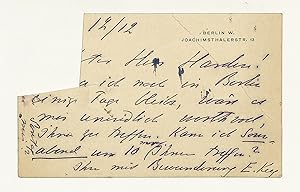 BERLIN W.
JOACHIMSTHALERSTR. 13
12/12
Herr Harden!
ich noch in Berlin
einige Tage bleibe, wäre es
mir unendlich
Ihnen zu treffen. Kann ich Sonn-
abend um 10 Ihnen treffen?
Ihr mit Bewunderung E. Key